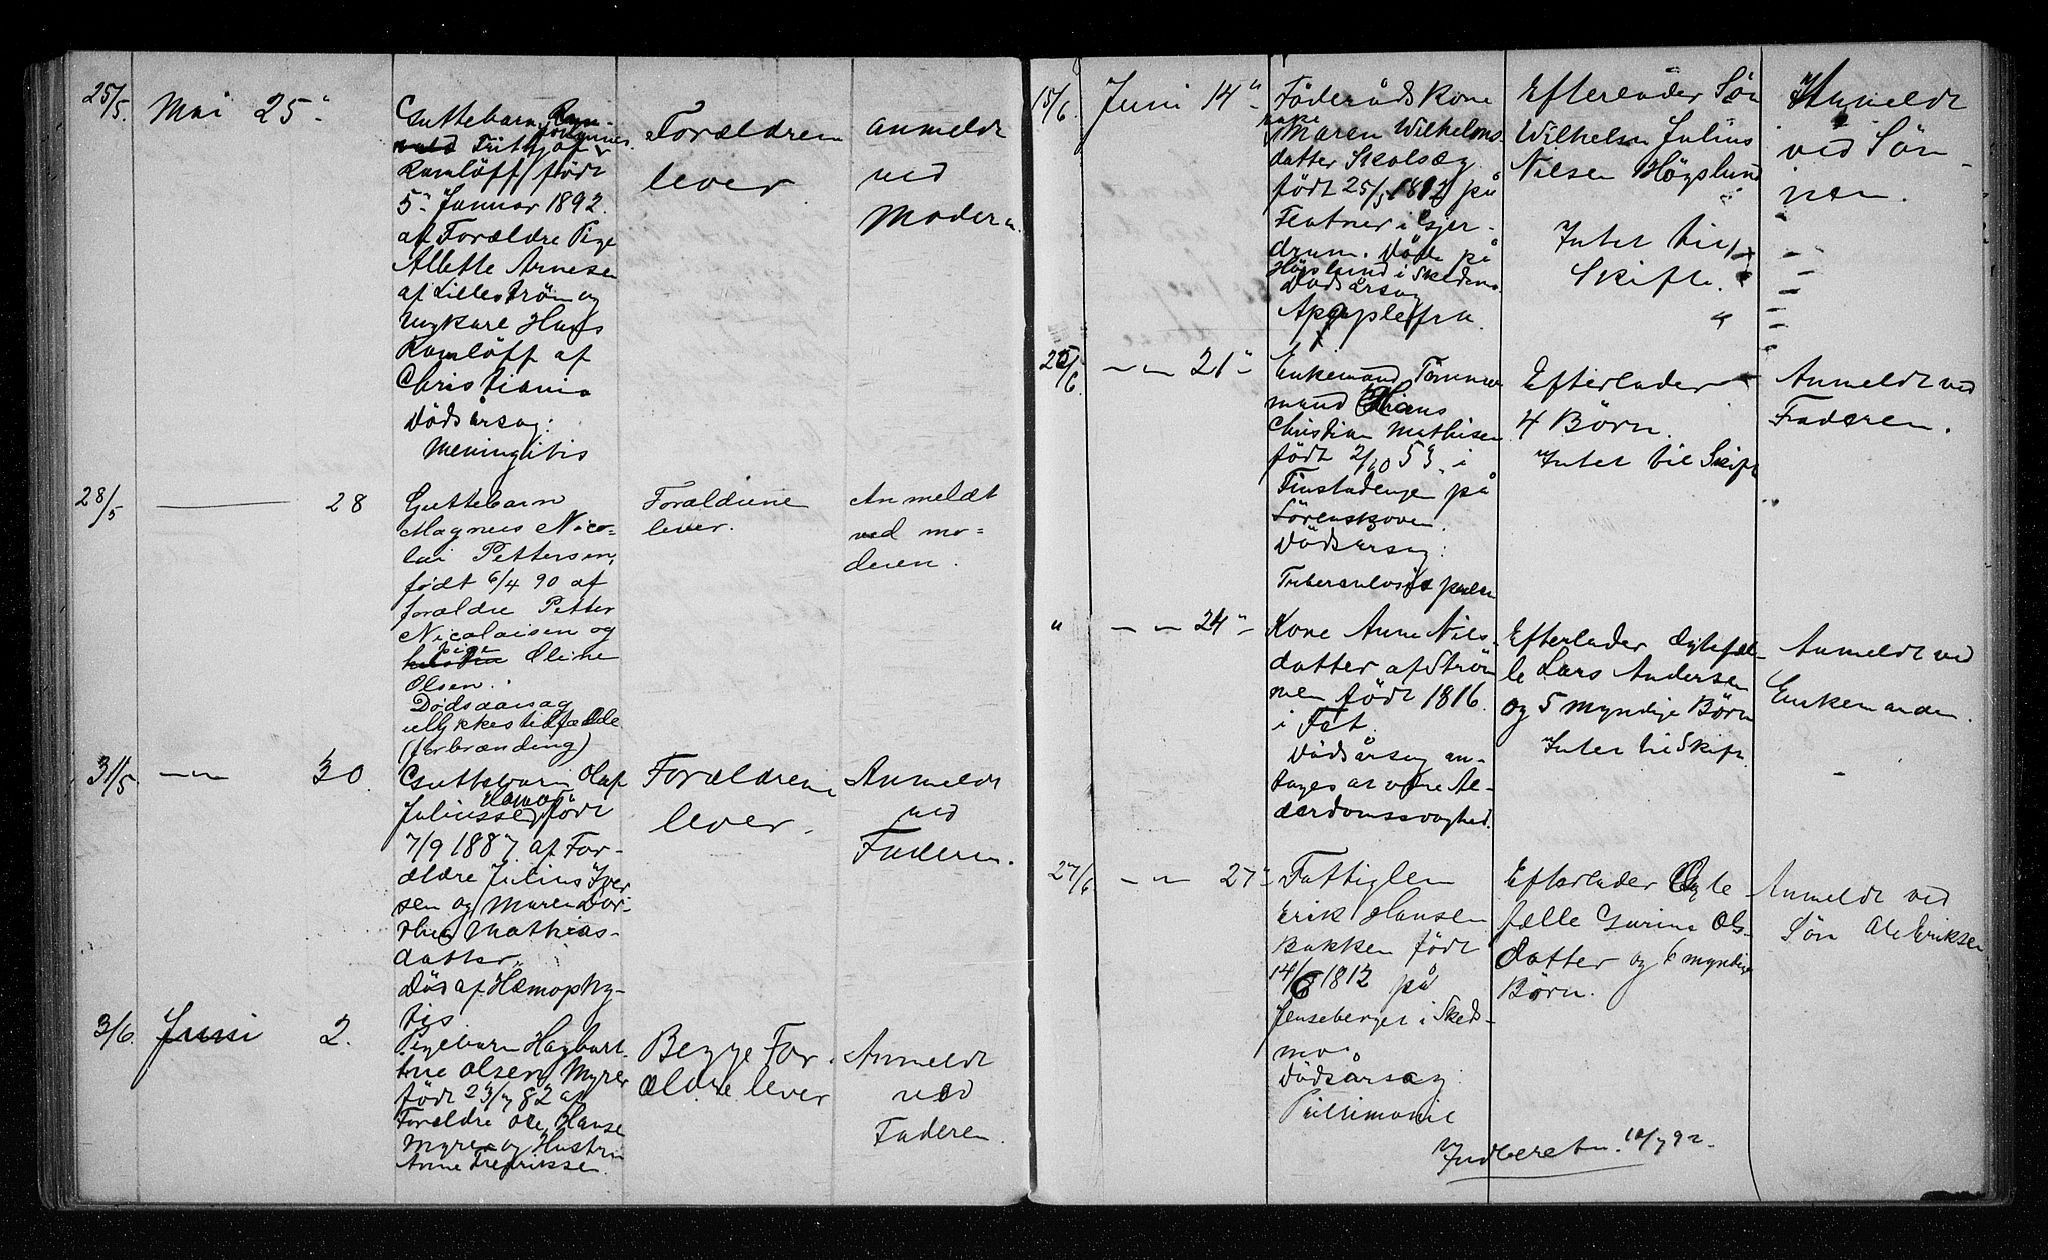 25/5. Mai 25"
Guttebarn
Fritjof Johannes
Ramlöff, født
5" Januar 1892.
af Forældre Pige
Alette Arnesen
af Lilleström og
Hans
Ramlöff af
Christiania
Dödsårsag:
Meningitis
Forældren
lever
anmeldt
ved
Modern.
28/5 — 28
Guttebarn
Magnus Nico-
lai Pettersen,
født 6/4 90 af
forældre Petter
Nicolaisen og
pige Oline
Olsen.
Dødsaarsag
ulykkestilfælde
(forbrænding)
Forældrene
lever.
Anmeldt
ved mo=
deren.
31/5 — 30.
Guttebarn Olaf
Juliussen født
7/9 1887. af For-
ældre Julius Iver
sen og Maren Dor-
thea Mathias-
datter
Död af Hæmophy-
tis
Forældrene
lever.
Anmeldt
ved
Faderen.
3/6. Juni 2.
Pigebarn Hagbart-
ine Olsen Myrer
født 23/7 82 af
Forældre Ole Hansen
Myrer og Hustru
Anne Fredriksen.
Begge For-
ældre lever
Anmeldt
ved
Faderen.
15/6. Juni 14"
Föderådskone
Maren Wilhelms-
datter Skolsæg.
født 25/5 1812 på
Flatner i Gjer-
drum. Död på
Högslund i Skedsmo.
Dödsårsag
Apoplefra.
Efterlader Sön
Wilhelm Julius
Nilsen Högslund
Intet til
Skifte.
Anmeldt
ved Sön-
nen.
25/6 — 21"
Enkemand Tömmer
mand Hans
Christian Mathisen
født 2/10 53 i
Finstadengen på
Lörenskoven.
Dödsårsag:
Tuberculosis pulm
Efterlader
4 Börn.
Intet til Skift
Anmeldt ved
Faderen.
" — 24"
Kone Anne Nils-
datter af Ström
men født 1816.
i Fet.
Dödsårsag an-
tages at være Al-
derdomssvaghed.
Efterlader Ægtefæl-
le Lars Andersen
og 5 myndige Börn
Intet til Skift.
Anmeldt ved
Enkemanden.
27/6 — 27"
Fattiglem
Erik Hansen
Bakken født
14/6 1812 på
Jenseberget i Skeds-
mo.
Dödsårsag:
Efterlader Ægte-
fælle Gurine Ols-
datter og 6 myndige
Börn.
Anmeldt ved
Sön Ole Eriksen
Indberetn. 10/7 92.